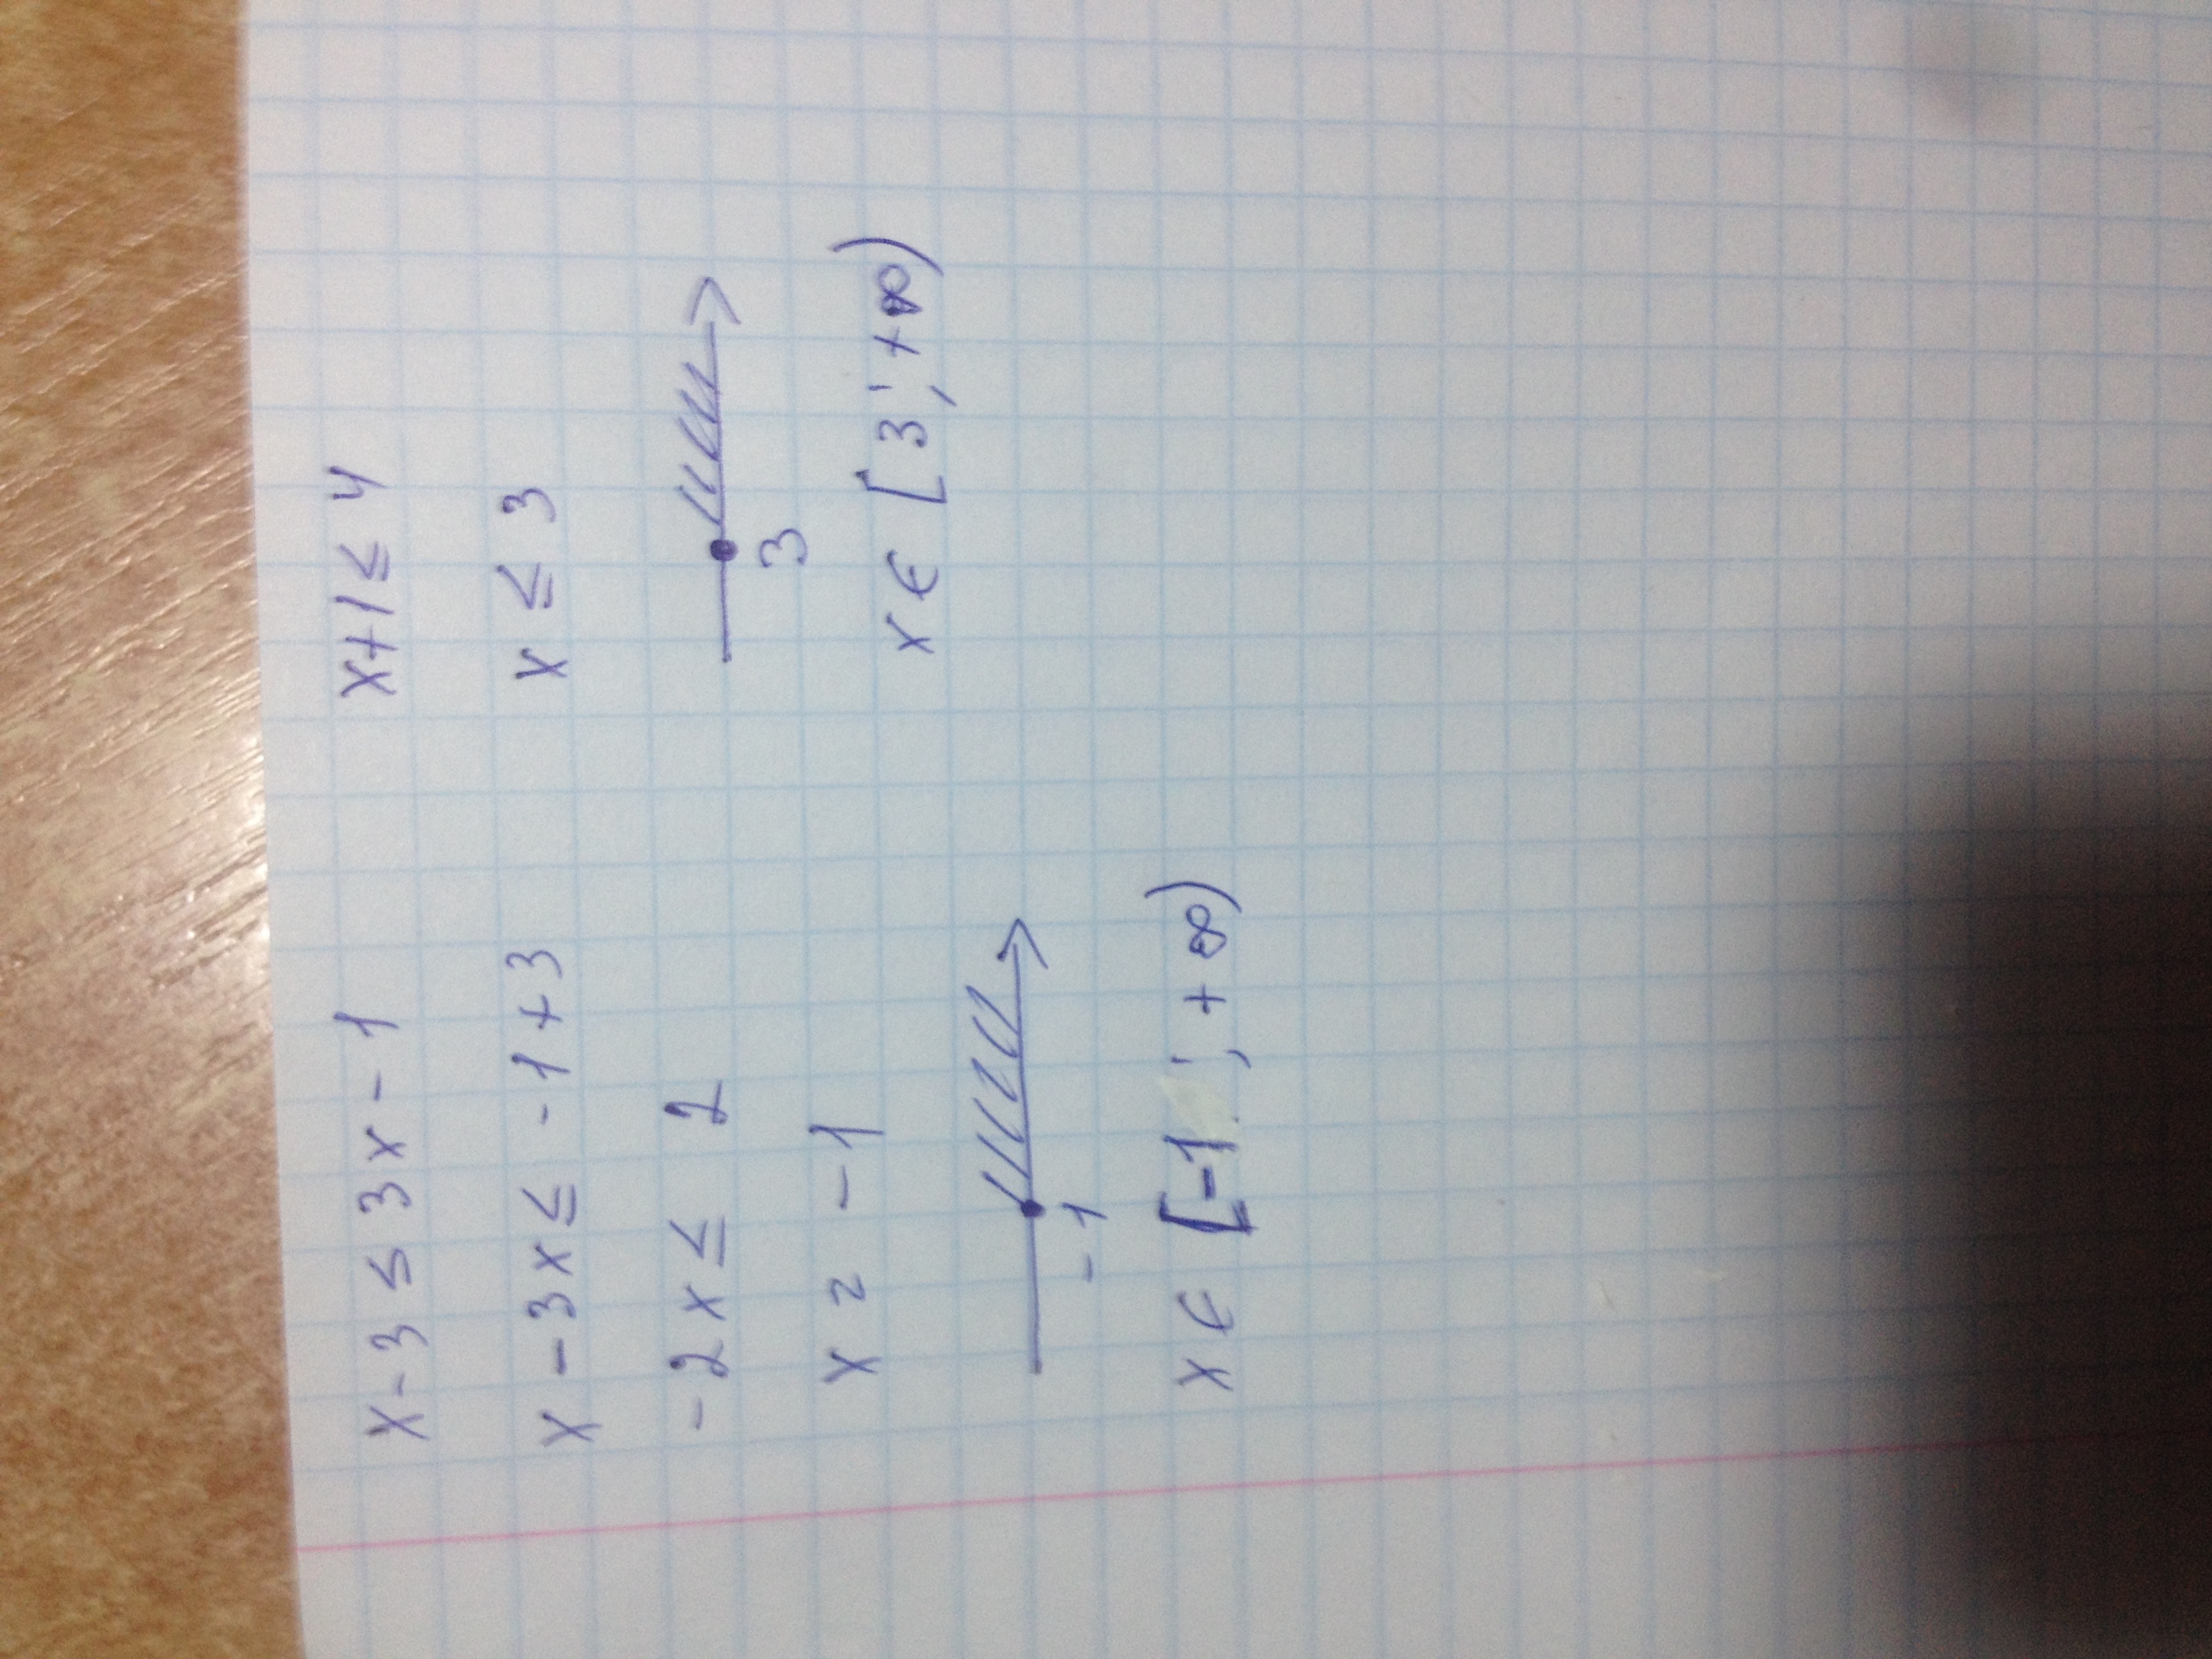 x-3 ≤ 3x-1
x-3x ≤ -1+3
-2x ≤ 2
x = -1
-1
x ∈ [-1 ; +∞)
x+1 ≤ 4
x ≤ 3
3
x ∈ [3 ; +∞)